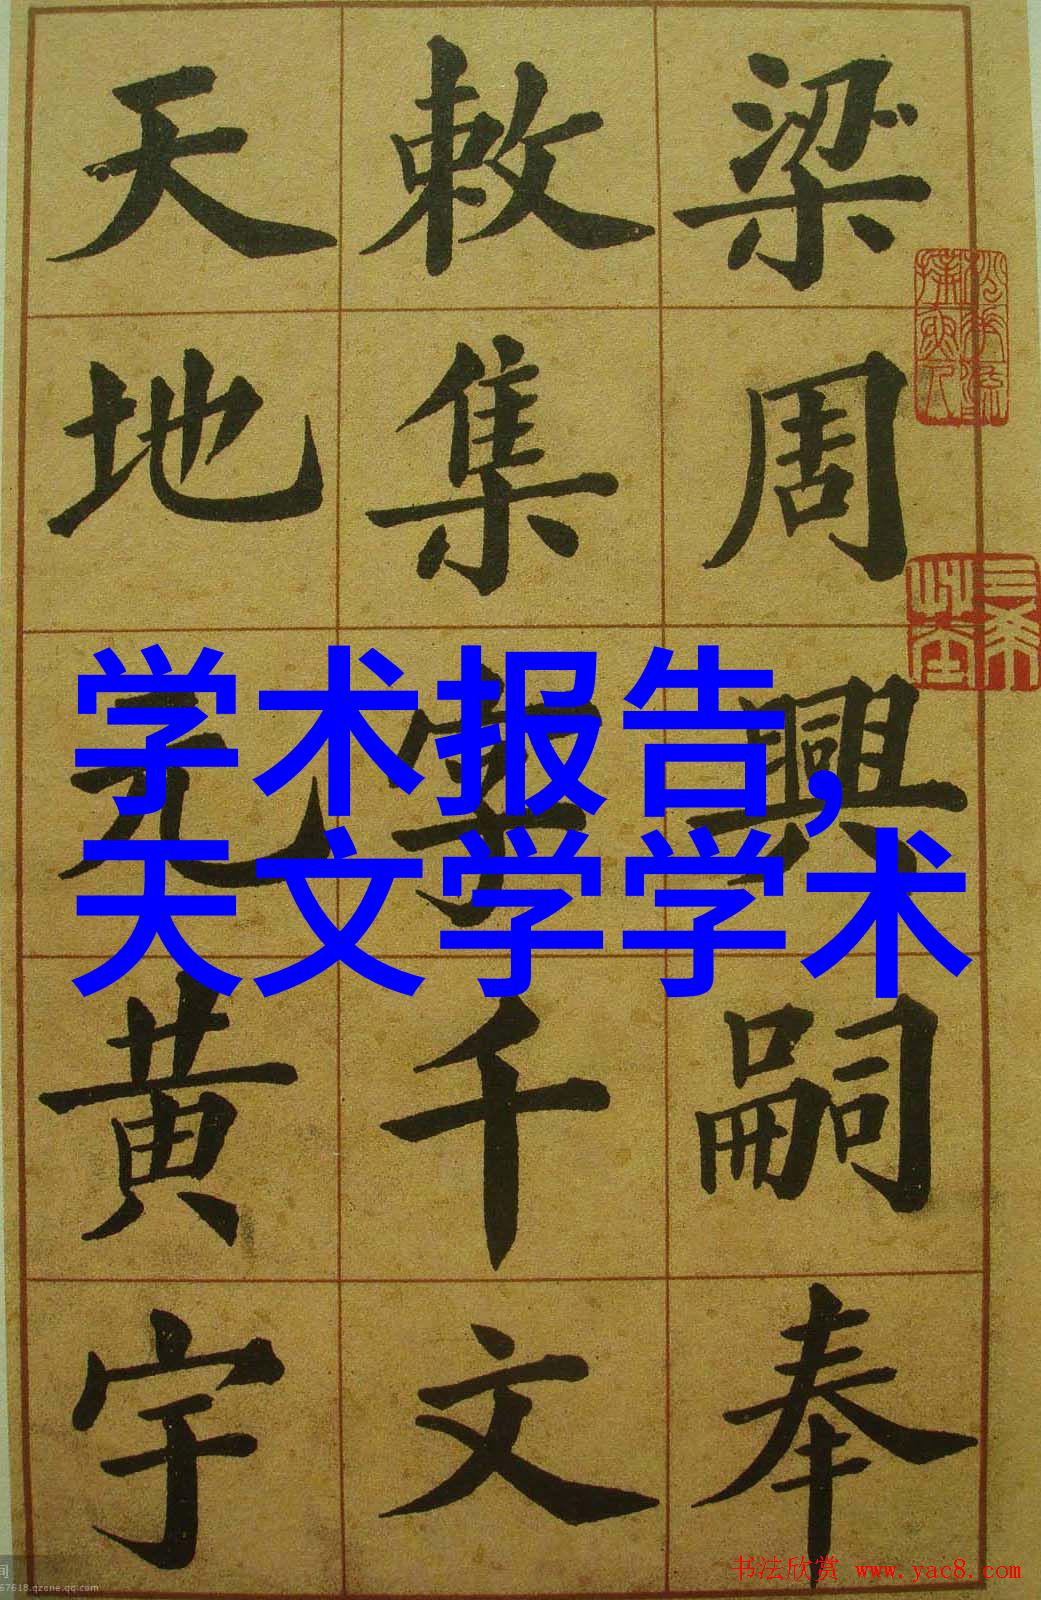 梁周興嗣奉
敕集字千文
天地元黄宇
学术报告,
天文学学术
书法欣赏 www.yac8.com
间
67618.qzone.qq.com